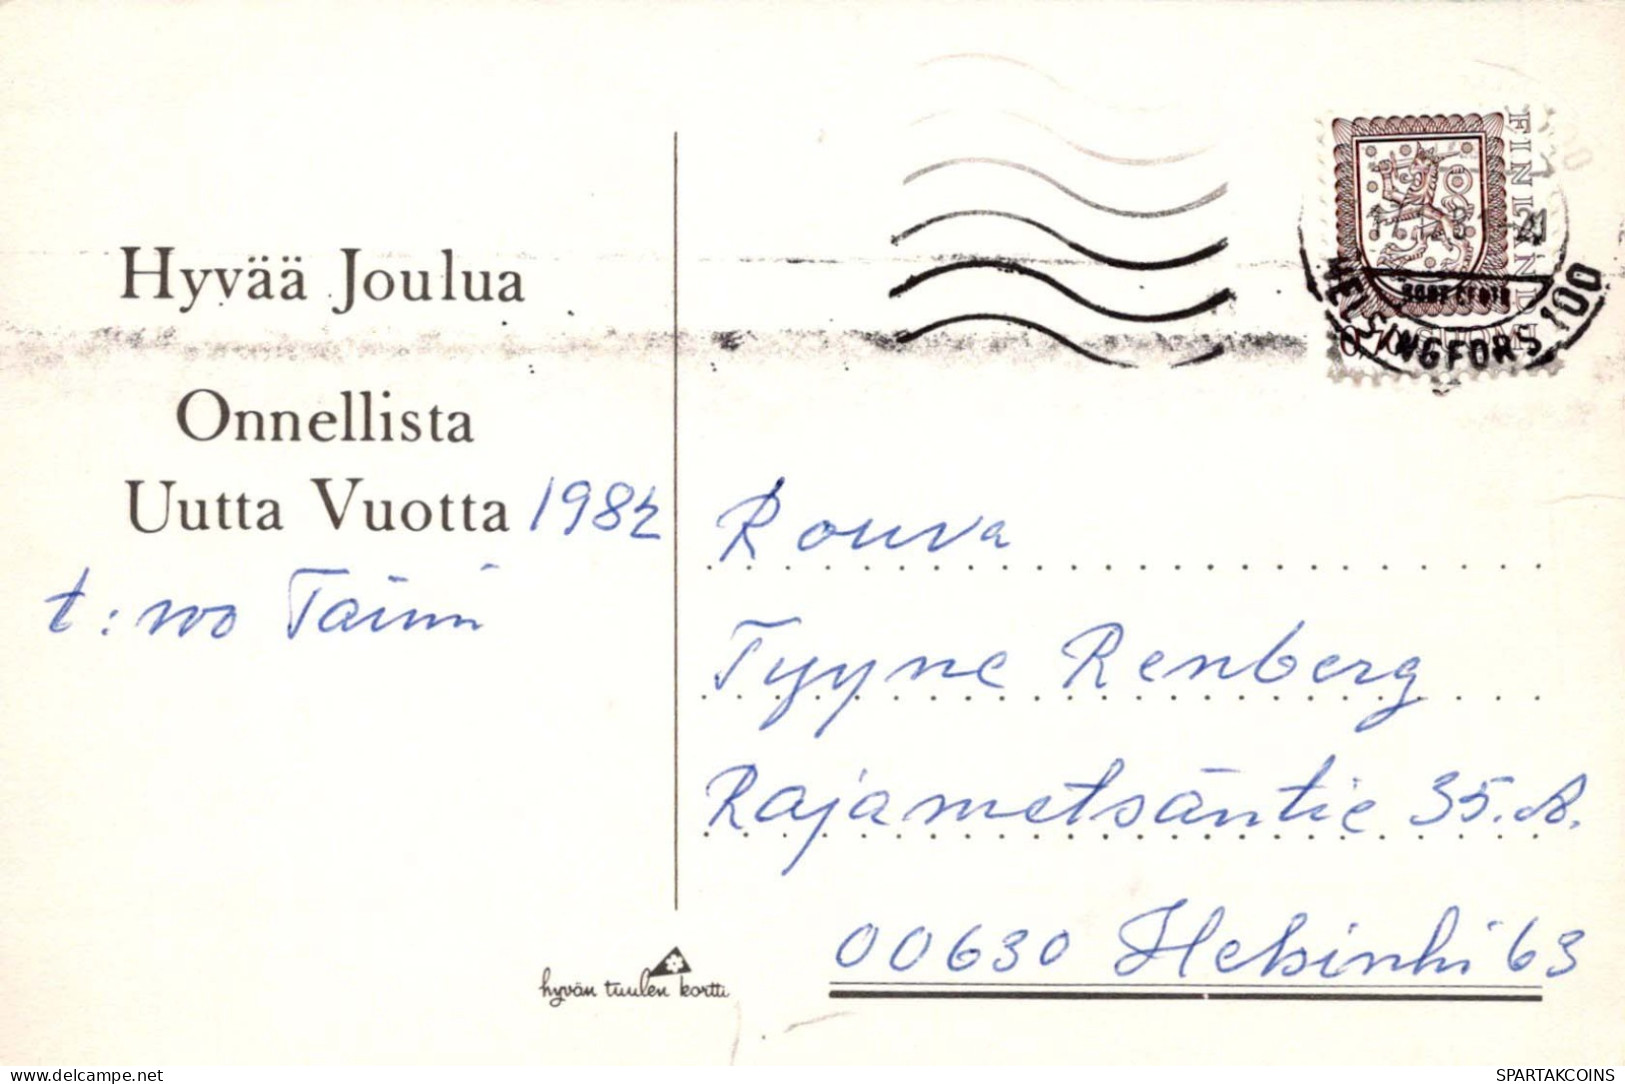 Hyvää Joulua
Onnellista
Uutta Vuotta 1982
t: Taimi
hyvän tuulen kortti
FINLAND
SUOMI
0,70
HELSINGFORS 100
Rouva
Tyyne Renberg
Rajametsäntie 35. A.
00630 Helsinki 63
delcampe.net
SPARTAKCOINS